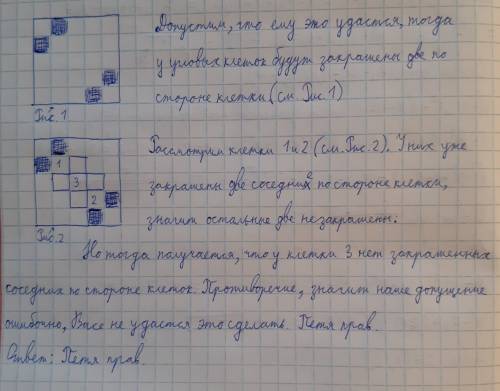 Допустим, что ему это удастся, тогда
у угловых клеток будут закрашены две по
стороне клетки (см. Рис. 1)
Рис. 1
Рассмотрим клетки 1 и 2 (см. Рис. 2). У них уже
1
3
2
закрашены две соседних по стороне клетки,
значит остальные две незакрашены.
Рис. 2
Но тогда получается, что у клетки 3 нет закрашенных
соседних по стороне клеток. Противоречие, значит наше допущение
ошибочно, Васе не удастся это сделать. Петя прав.
Ответ: Петя прав.